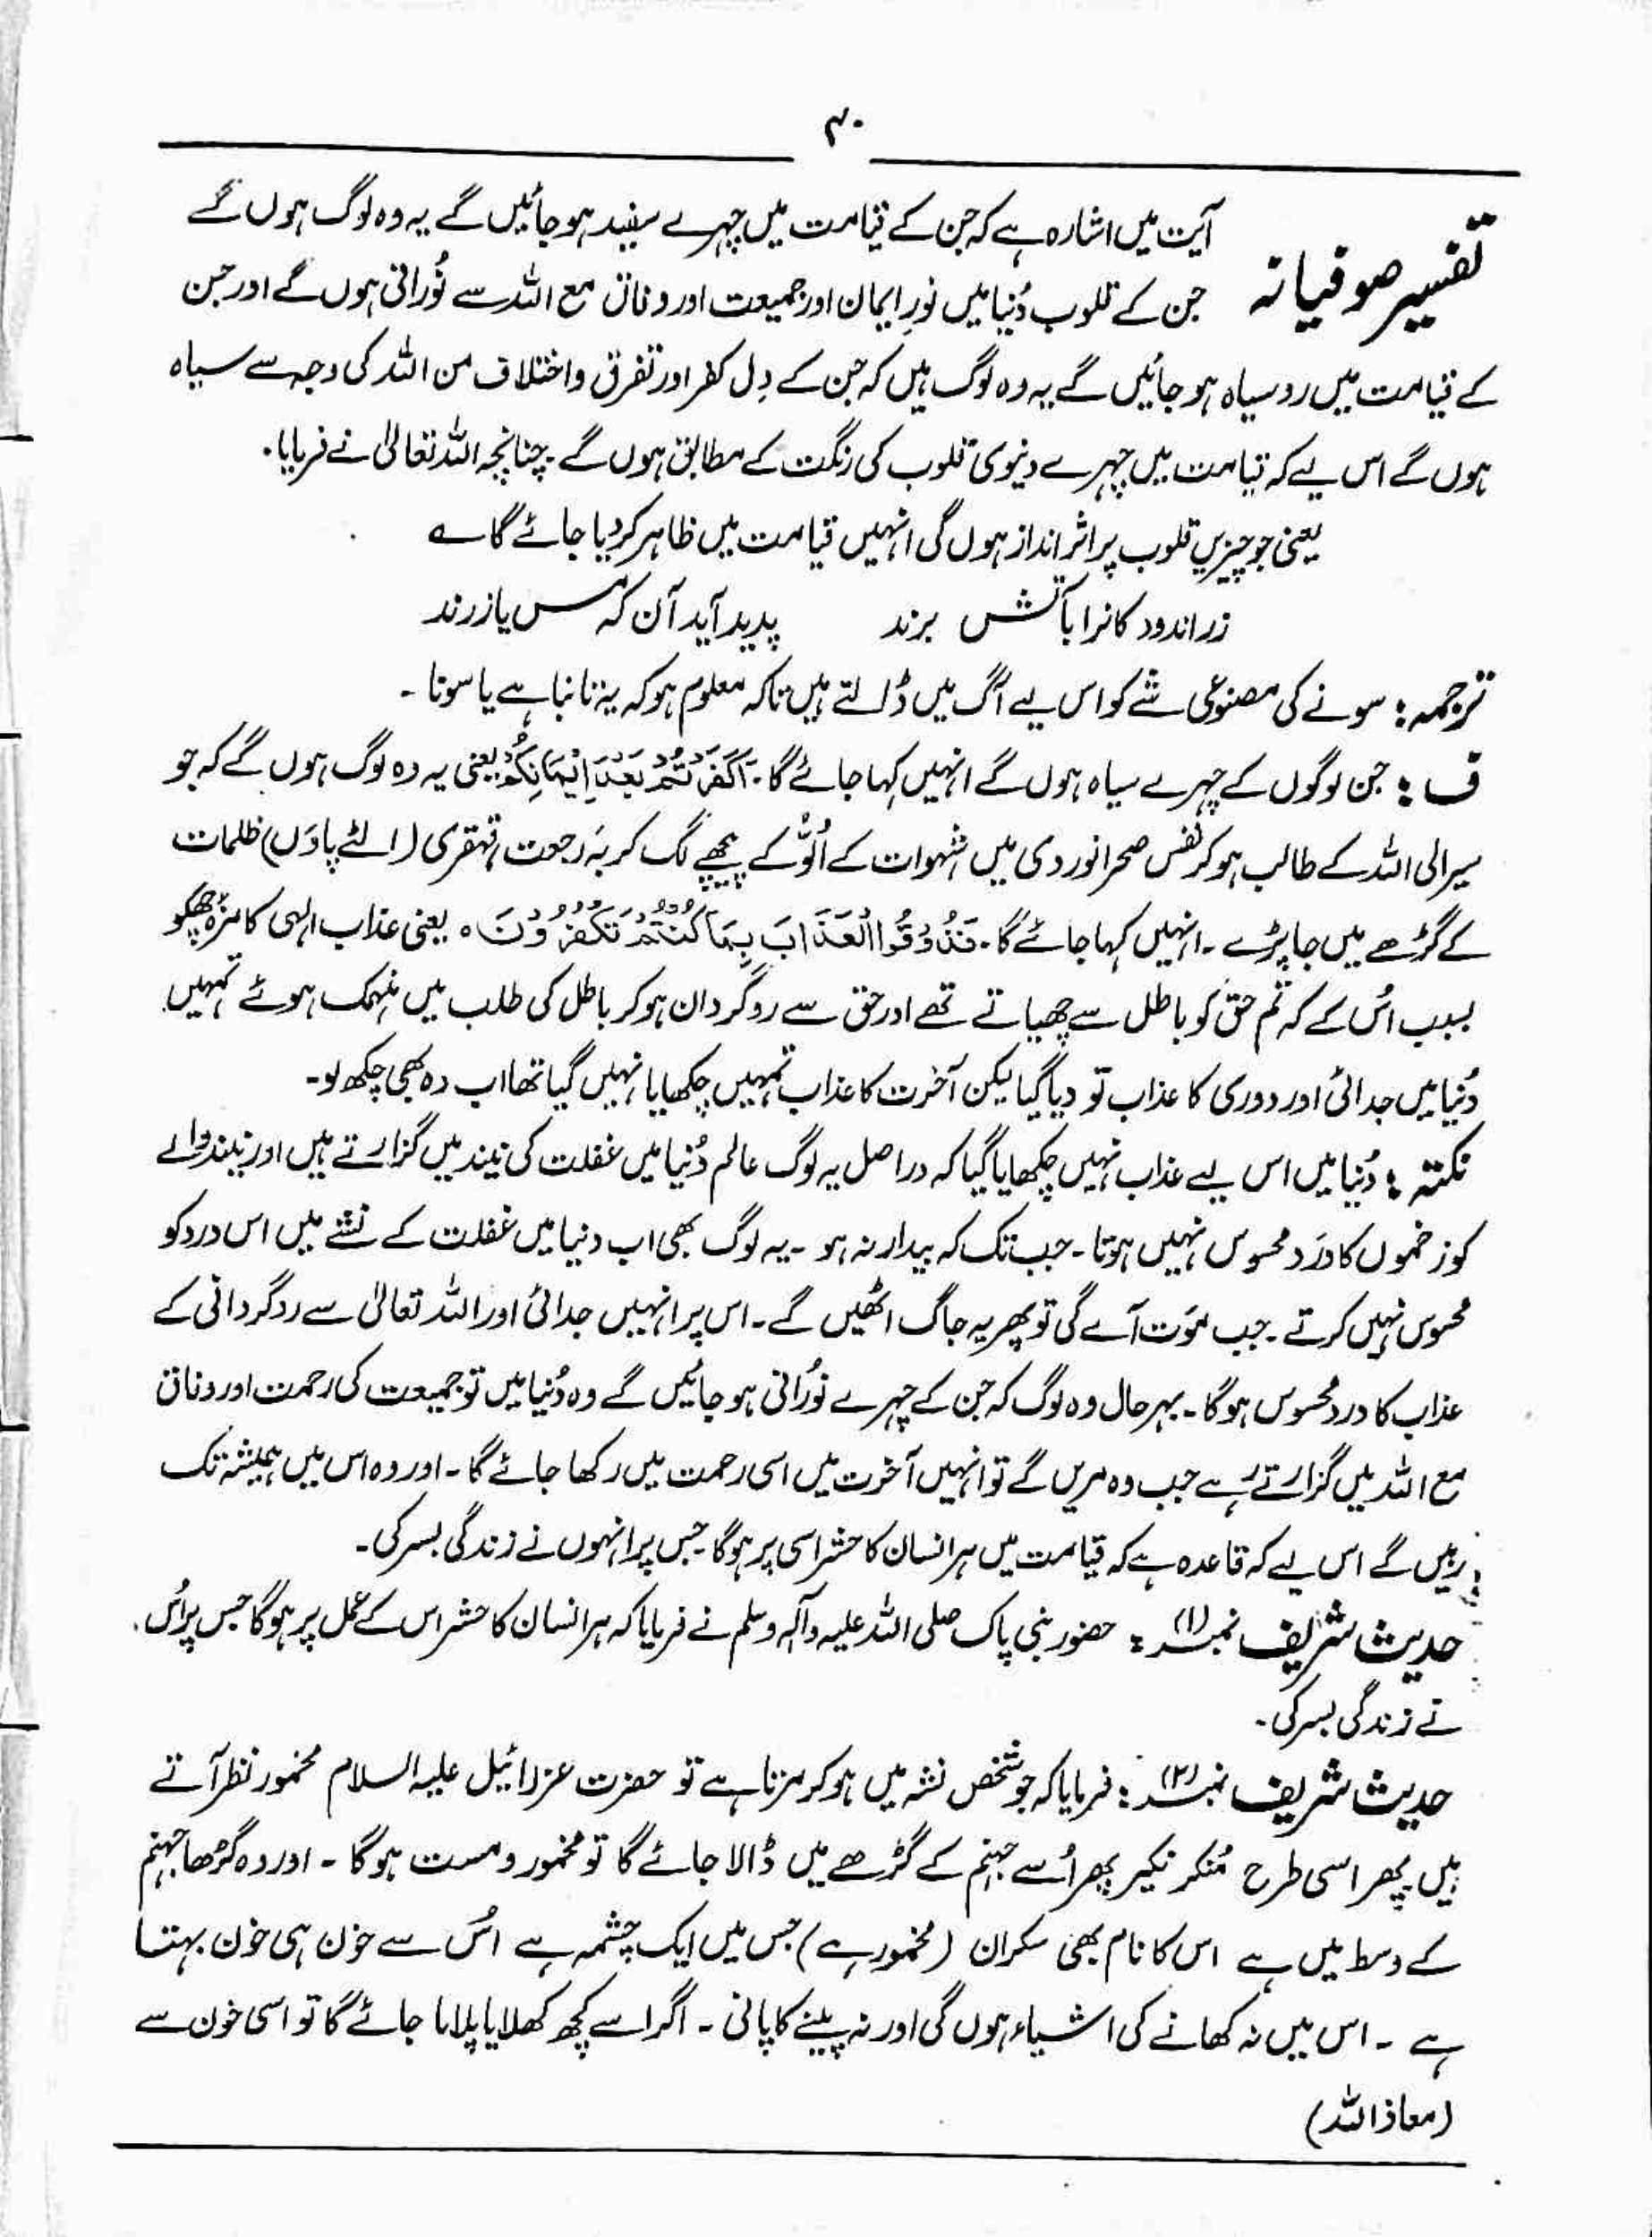 ۴۰
تفسیر صوفیانہ
آیت میں اشارہ ہے کہ جن کے قیامت میں چہرے سفید ہو جائیں گے یہ وہ لوگ ہوں گے
جن کے قلوب دُنیا میں نورِ ایمان اور جمیعت اور وفاق مع اللہ سے نُورانی ہوں گے اور جن
کے قیامت میں رو سیاہ ہو جائیں گے یہ وہ لوگ ہیں کہ جن کے دِل کفر اور تفرق و اختلاف من اللہ کی وجہ سے سیاہ
ہوں گے اس لیے کہ قیامت میں چہرے دنیوی قلوب کی رنگت کے مطابق ہوں گے۔ چنانچہ اللہ تعالیٰ نے فرمایا۔
یعنی جو چیزیں قلوب پر اثر انداز ہوں گی انہیں قیامت میں ظاہر کر دیا جائے گا ؎
زر اندود کانرا بآتش برند پدید آید آن کہ مس یا زرند
ترجمہ: سونے کی مصنوعی شے کو اس لیے آگ میں ڈالتے ہیں تاکہ معلوم ہو کہ یہ تانبا ہے یا سونا ۔
ف : جن لوگوں کے چہرے سیاہ ہوں گے انہیں کہا جائے گا۔ اَكَفَرْتُمْ بَعْدَ اِیْمَانِكُمْ یعنی یہ وہ لوگ ہوں گے کہ جو
سیر الی اللہ کے طالب ہو کر نفس صحرا نوردی میں شہوات کے اُلّو کے پیچھے لگ کر بہ رَجعت قہقری (الٹے پاؤں) ظلمات
کے گڑھے میں جا پڑے ۔ انہیں کہا جائے گا۔ فَذُوْقُوا الْعَذَابَ بِمَا كُنْتُمْ تَكْفُرُوْنَ ہ یعنی عذاب الٰہی کا مزہ چکھو
بسبب اُس کے کہ تم حق کو باطل سے چھپاتے تھے اور حق سے روگردان ہو کر باطل کی طلب میں منہمک ہوئے تمہیں
دُنیا میں جدائی اور دوری کا عذاب تو دیا گیا لیکن آخرت کا عذاب تمہیں چکھایا نہیں گیا تھا اب وہ بھی چکھ لو۔
نکتہ : دُنیا میں اس لیے عذاب نہیں چکھایا گیا کہ دراصل یہ لوگ عالم دُنیا میں غفلت کی نیند میں گزارتے ہیں اور نیند والے
کو زخموں کا دَرد محسوس نہیں ہوتا ۔ جب تک کہ بیدار نہ ہو ۔ یہ لوگ بھی اب دنیا میں غفلت کے نشے میں اس درد کو
محسوس نہیں کرتے ۔ جب مَوت آئے گی تو پھر یہ جاگ اٹھیں گے۔ اس پر انہیں جدائی اور اللہ تعالیٰ سے روگردانی کے
عذاب کا درد محسوس ہوگا۔ بہر حال وہ لوگ کہ جن کے چہرے نُورانی ہو جائیں گے وہ دُنیا میں تو جمیعت کی رحمت اور وفاق
مع اللہ میں گزارتے رہے جب وہ مریں گے تو انہیں آخرت میں اسی رحمت میں رکھا جائے گا ۔ اور وہ اس میں ہمیشہ تک
رہیں گے اس لیے کہ قاعدہ ہے کہ قیامت میں ہر انسان کا حشر اسی پر ہوگا جس پر انہوں نے زندگی بسر کی ۔
حدیث شریف نمبر (۱) : حضور نبی پاک صلی اللہ علیہ وآلہ وسلم نے فرمایا کہ ہر انسان کا حشر اس کے عمل پر ہوگا جس پر اُس
نے زندگی بسر کی ۔
حدیث شریف نمبر (۲) : فرمایا کہ جو شخص نشہ میں ہو کر مرتا ہے تو حضرت عزرائیل علیہ السلام مخمور نظر آتے
ہیں پھر اسی طرح مُنکر نکیر پھر اُسے جہنم کے گڑھے میں ڈالا جائے گا تو مخمور و مست ہوگا ۔ اور وہ گڑھا جہنم
کے وسط میں ہے اس کا نام بھی سکران (مخمور ہے) جس میں ایک چشمہ ہے اُس سے خون ہی خون بہتا
ہے ۔ اس میں نہ کھانے کی اشیاء ہوں گی اور نہ پینے کا پانی ۔ اگر اسے کچھ کھلایا پلایا جائے گا تو اسی خون سے
(معاذ اللہ)